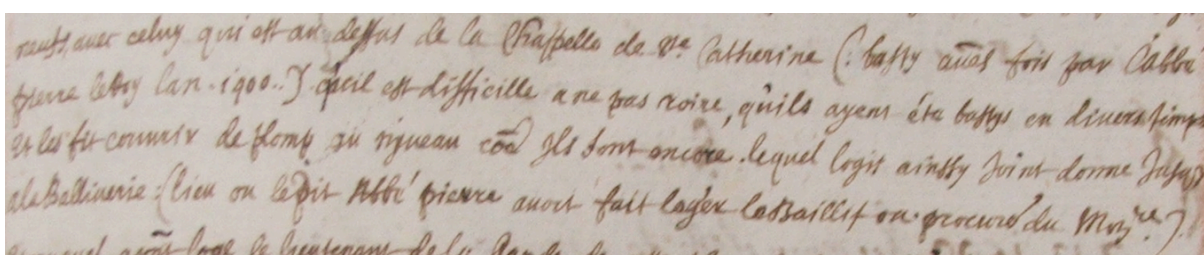 neufs, avec celuy qui est au dessus de la Chappelle de Ste Catherine (: basty aũes fois par l'abbé
pierre le Roy lan .1400..) qu'il est difficille a ne pas croire, qu'ils ayent été bastys en divers temps
et les fit couvrir de plomb au niveau cõe Ils sont encore . lequel logis ainssy Joint donne Jusq
a la Belliverie: (lieu ou le dit Abbé pierre avoit fait loger le Baillif ou procure du Mon.re).
loge le lieutenant de la